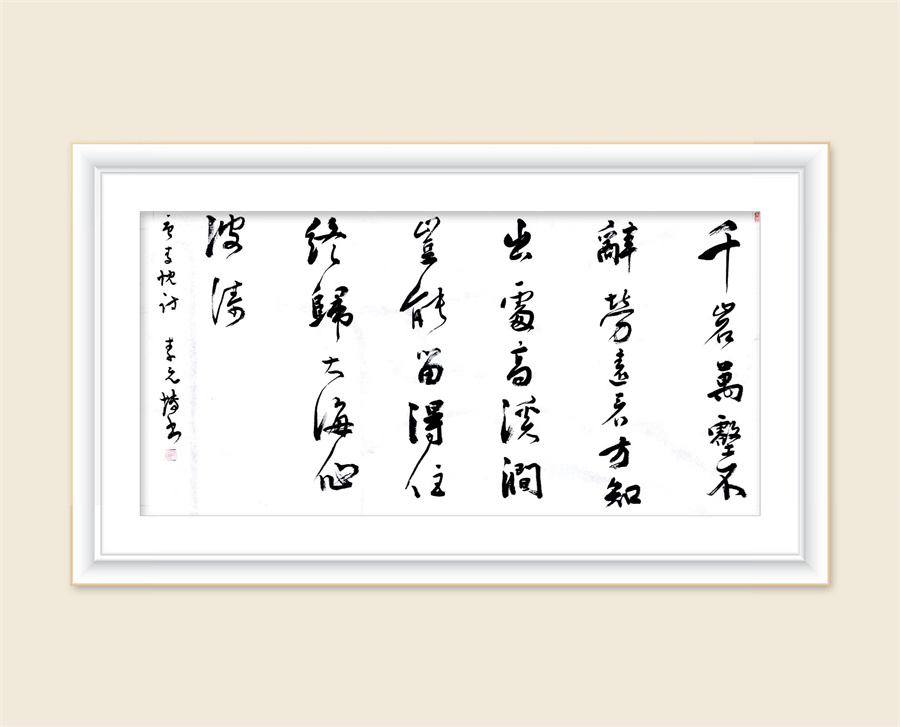 千岩萬壑不
辭勞遠看方知
出處高溪澗
豈能留得住
終歸大海作
波濤
唐李忱詩 李元书